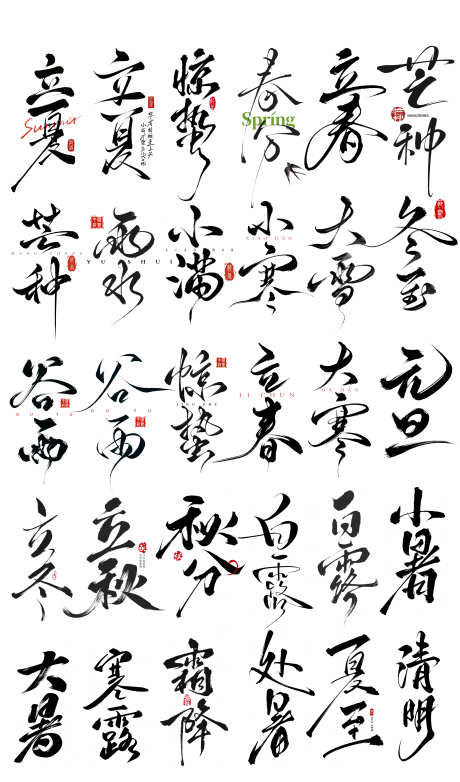 立夏
Summer
立夏
惊蛰
春分
Spring
立春
芒种
芒种
雨水
YU SHUI
小满
小寒
XIAO HAN
大雪
冬至
谷雨
谷雨
惊蛰
立春
LI CHUN
大寒
DA HAN
元旦
立冬
立秋
秋分
白露
白露
小暑
大暑
寒露
霜降
处暑
夏至
清明